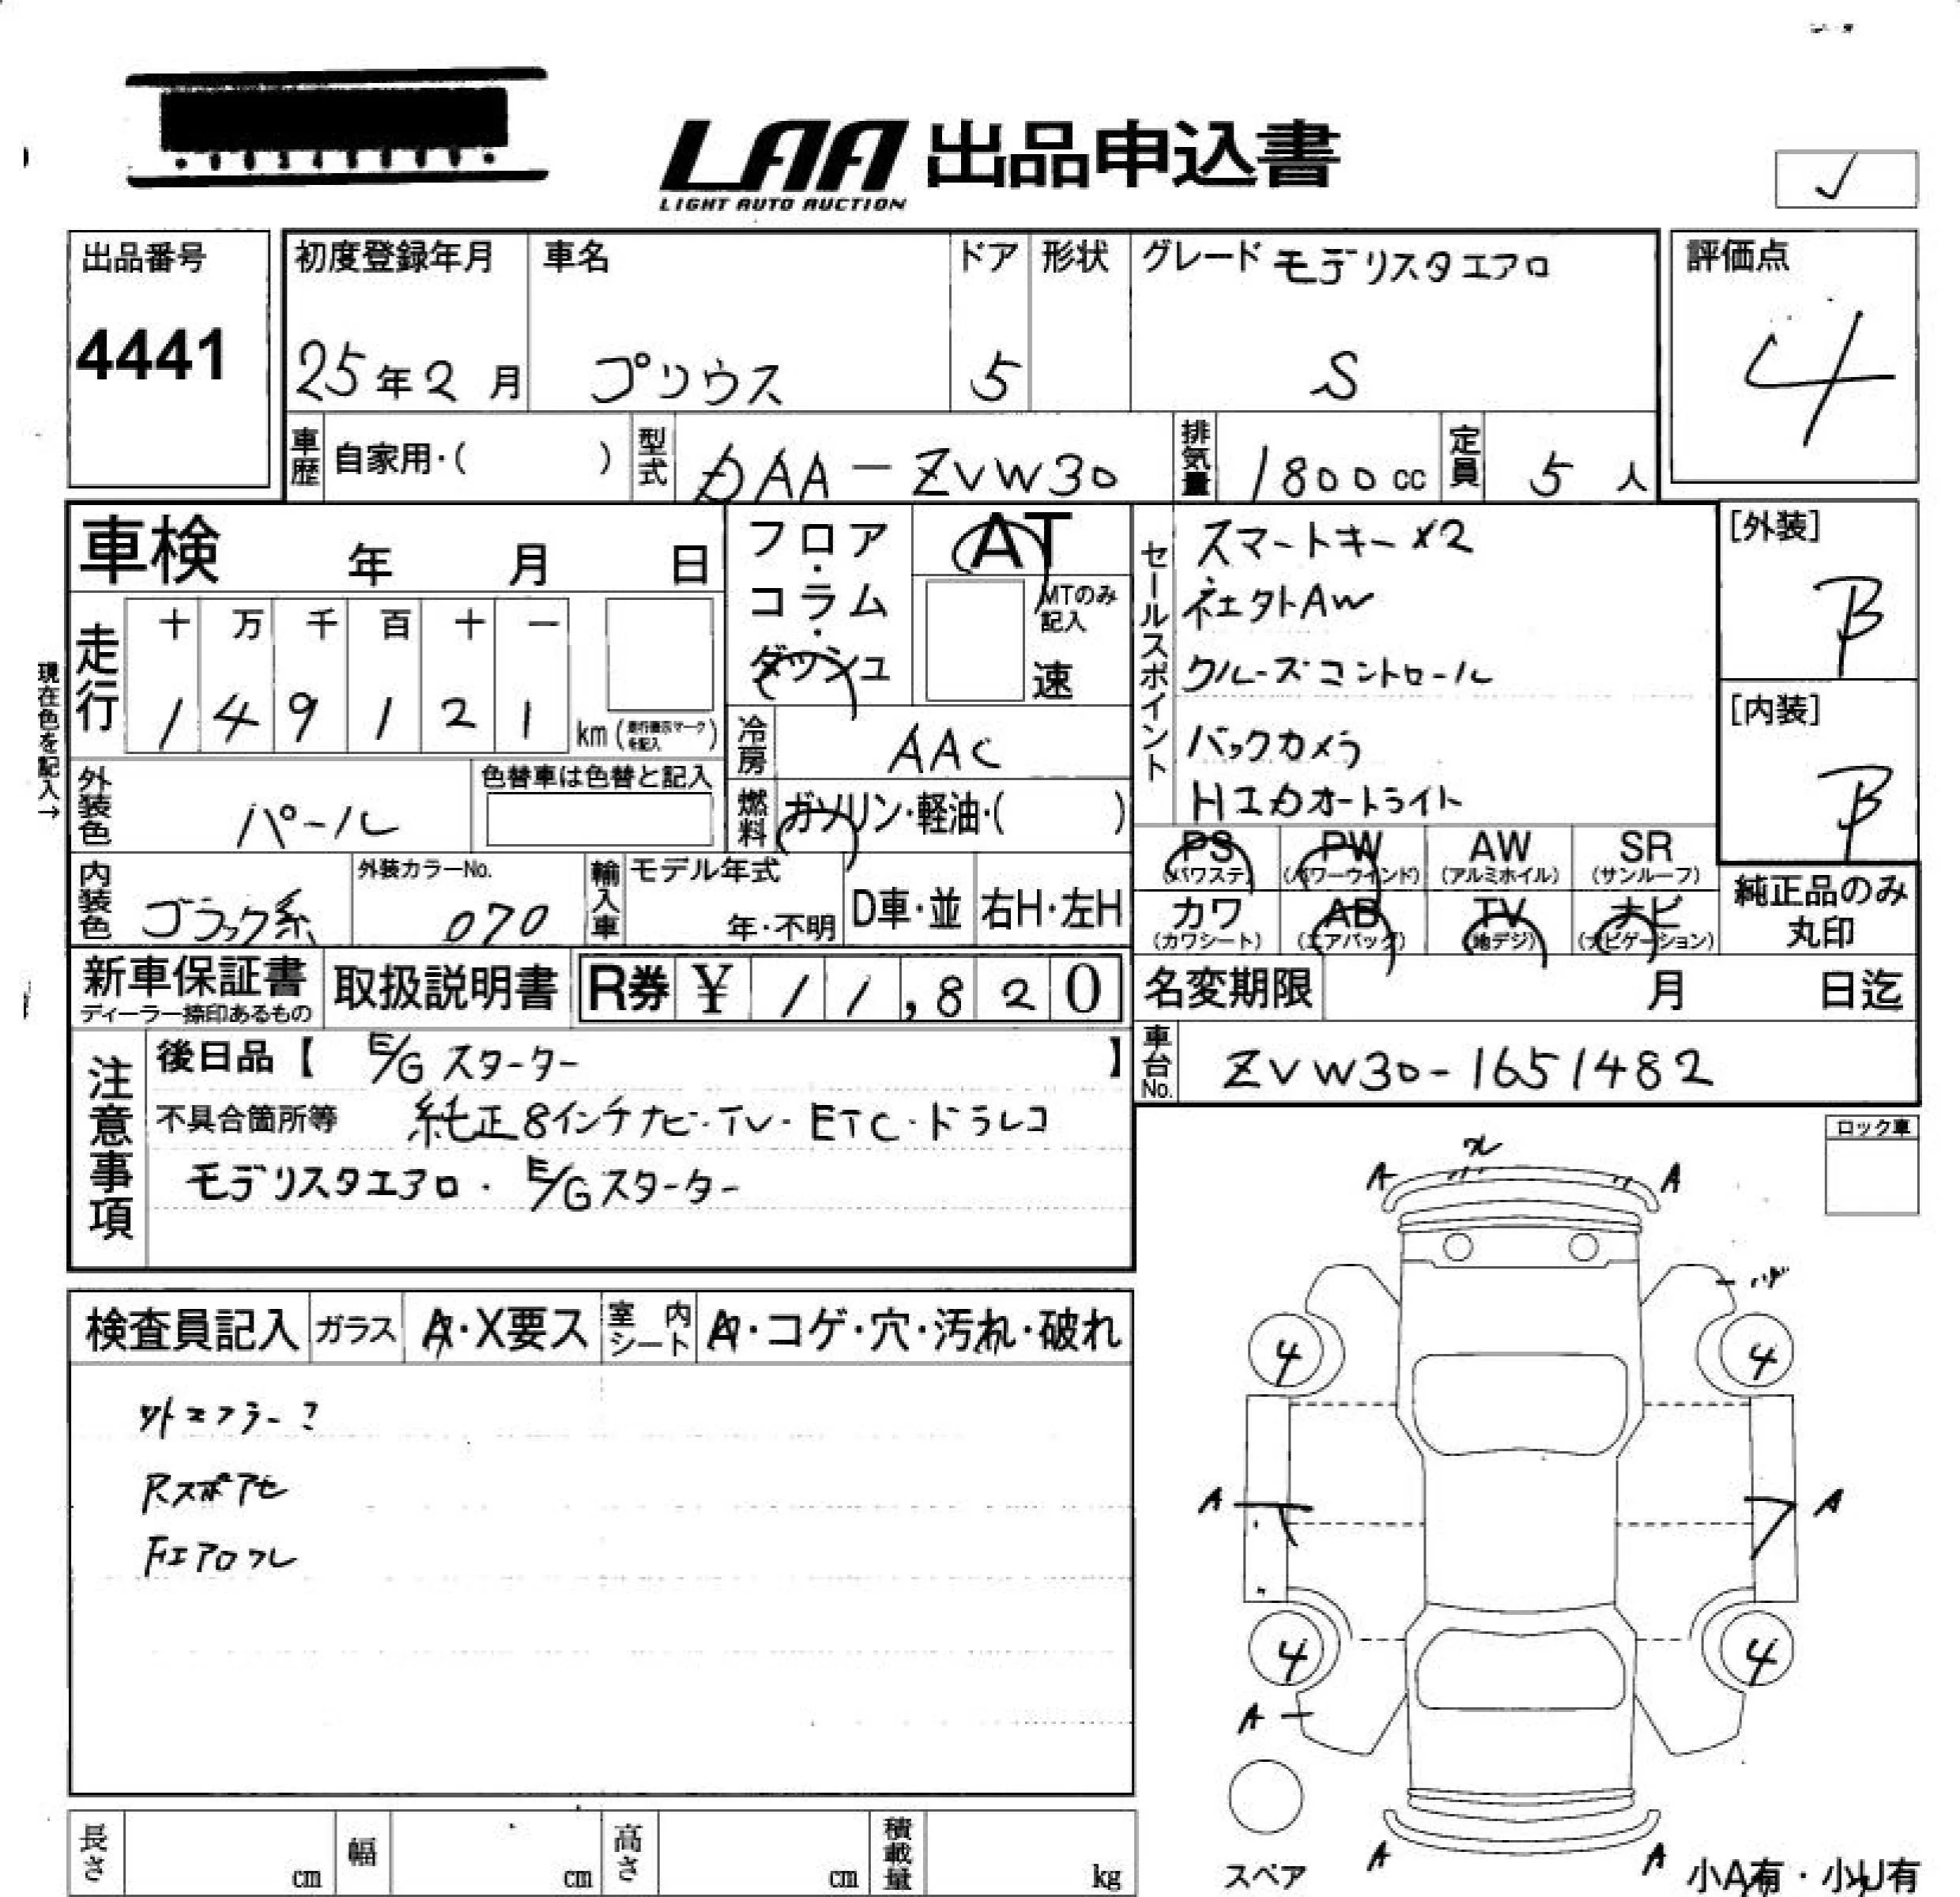 LAA 出品申込書
LIGHT AUTO AUCTION
出品番号
4441
初度登録年月
25年2月
車名
プリウス
ドア
5
形状
グレード モデリスタエアロ
S
評価点
4
車歴 自家用・( )
型式 DAA-ZVW30
排気量 1800cc
定員 5人
車検 年 月 日
フロア・コラム・ダッシュ
AT
MTのみ記入
速
セールスポイント
スマートキー×2
社外AW
クルーズコントロール
バックカメラ
HIDオートライト
[外装]
B
[内装]
B
現在色を記入→
走行
十 万 千 百 十 一
1 4 9 1 2 1 km
冷房 AAC
外装色 パール
色替車は色替と記入
燃料 ガソリン・軽油・( )
PS (パワステ)
PW (パワーウインド)
AW (アルミホイル)
SR (サンルーフ)
カワ (カワシート)
AB (エアバッグ)
TV (地デジ)
ナビ (ナビゲーション)
純正品のみ丸印
内装色 ブラック系
外装カラーNo. 070
輸入車
モデル年式
年・不明
D車・並
右H・左H
新車保証書
ディーラー捺印あるもの
取扱説明書
R券 ¥ 11,820
名変期限 月 日迄
車台No. ZVW30-1651482
注意事項
後日品【 E/Gスターター 】
不具合箇所等 純正8インチナビ・TV・ETC・ドラレコ
モデリスタエアロ・E/Gスターター
ロック車
検査員記入
ガラス A・X要ス
室内シート A・コゲ・穴・汚れ・破れ
Rスポアセ
Fエアロワレ
A ワレ A
4 4
A A
4 4
A
A A
スペア
小A有・小U有
長さ cm
幅 cm
高さ cm
積載量 kg